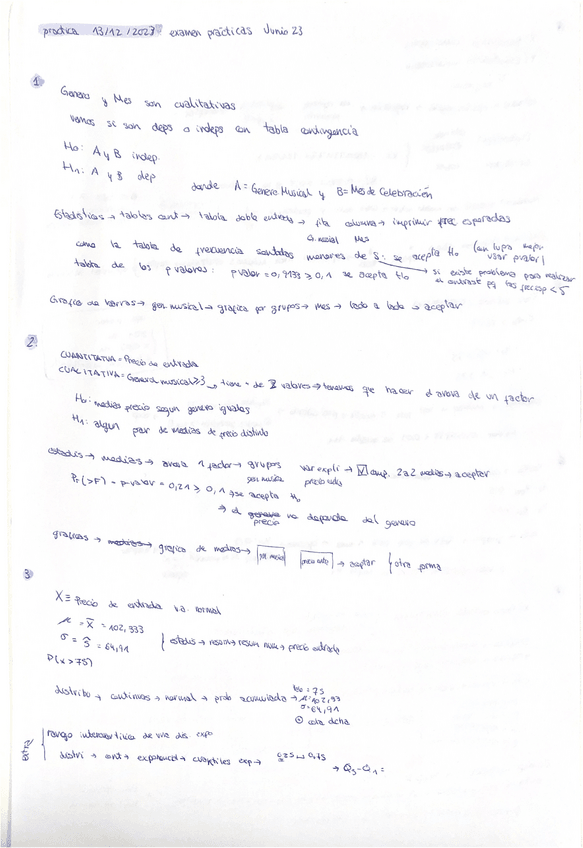 practica 13/12/2023 examen prácticas Junio 23
1
Genero y Mes son cualitativas
vemos si son deps o indeps con tabla contingencia
H0: A y B indep.
H1: A y B dep
donde A = Genero Musical y B = Mes de Celebración
Estadisticas → tablas cont → tabla doble entrada → fila columna → imprimir frec esperadas
G. musical Mes
como la tabla de frecuencia son todas menores de 5: se acepta H0 (en lupa mejor usar pvalor)
tabla de los p valores: p valor = 0,9133 ≥ 0,1 se acepta H0 → si existe problema para realizar el contraste pq las frec esp < 5
Grafica de barras → gen musical → grafica por grupos → mes → lado a lado → aceptar
2
CUANTITATIVA = Precio de entrada
CUALITATIVA = Genero musical ≥ 3 → tiene + de 2 valores → tenemos que hacer el anova de un factor
H0: medias precio segun genero iguales
H1: algun par de medias de precio distinto
estadis → medias → anova 1 factor → grupos var expli → comp. 2a2 medias → aceptar
gen musical precio entr
Pr(>F) = p-valor = 0,21 ≥ 0,1 → se acepta H0
→ el precio no depende del genero
graficas → grafica de medias → gen musical precio entr → aceptar } otra forma
3
X ≡ Precio de entrada v.a. normal
μ = x̄ = 102,333
σ = ŝ = 64,91 } estadis → resum → resum num → precio entrada
P(x > 75)
distribu → continuas → normal → prob acumulada → μ = 102,33
σ = 64,91
cola dcha
extra
rango intercuartilico de una dis expo
distri → cont → exponencial → cuantiles exp → 0,25 0,75
→ Q3 - Q1 =